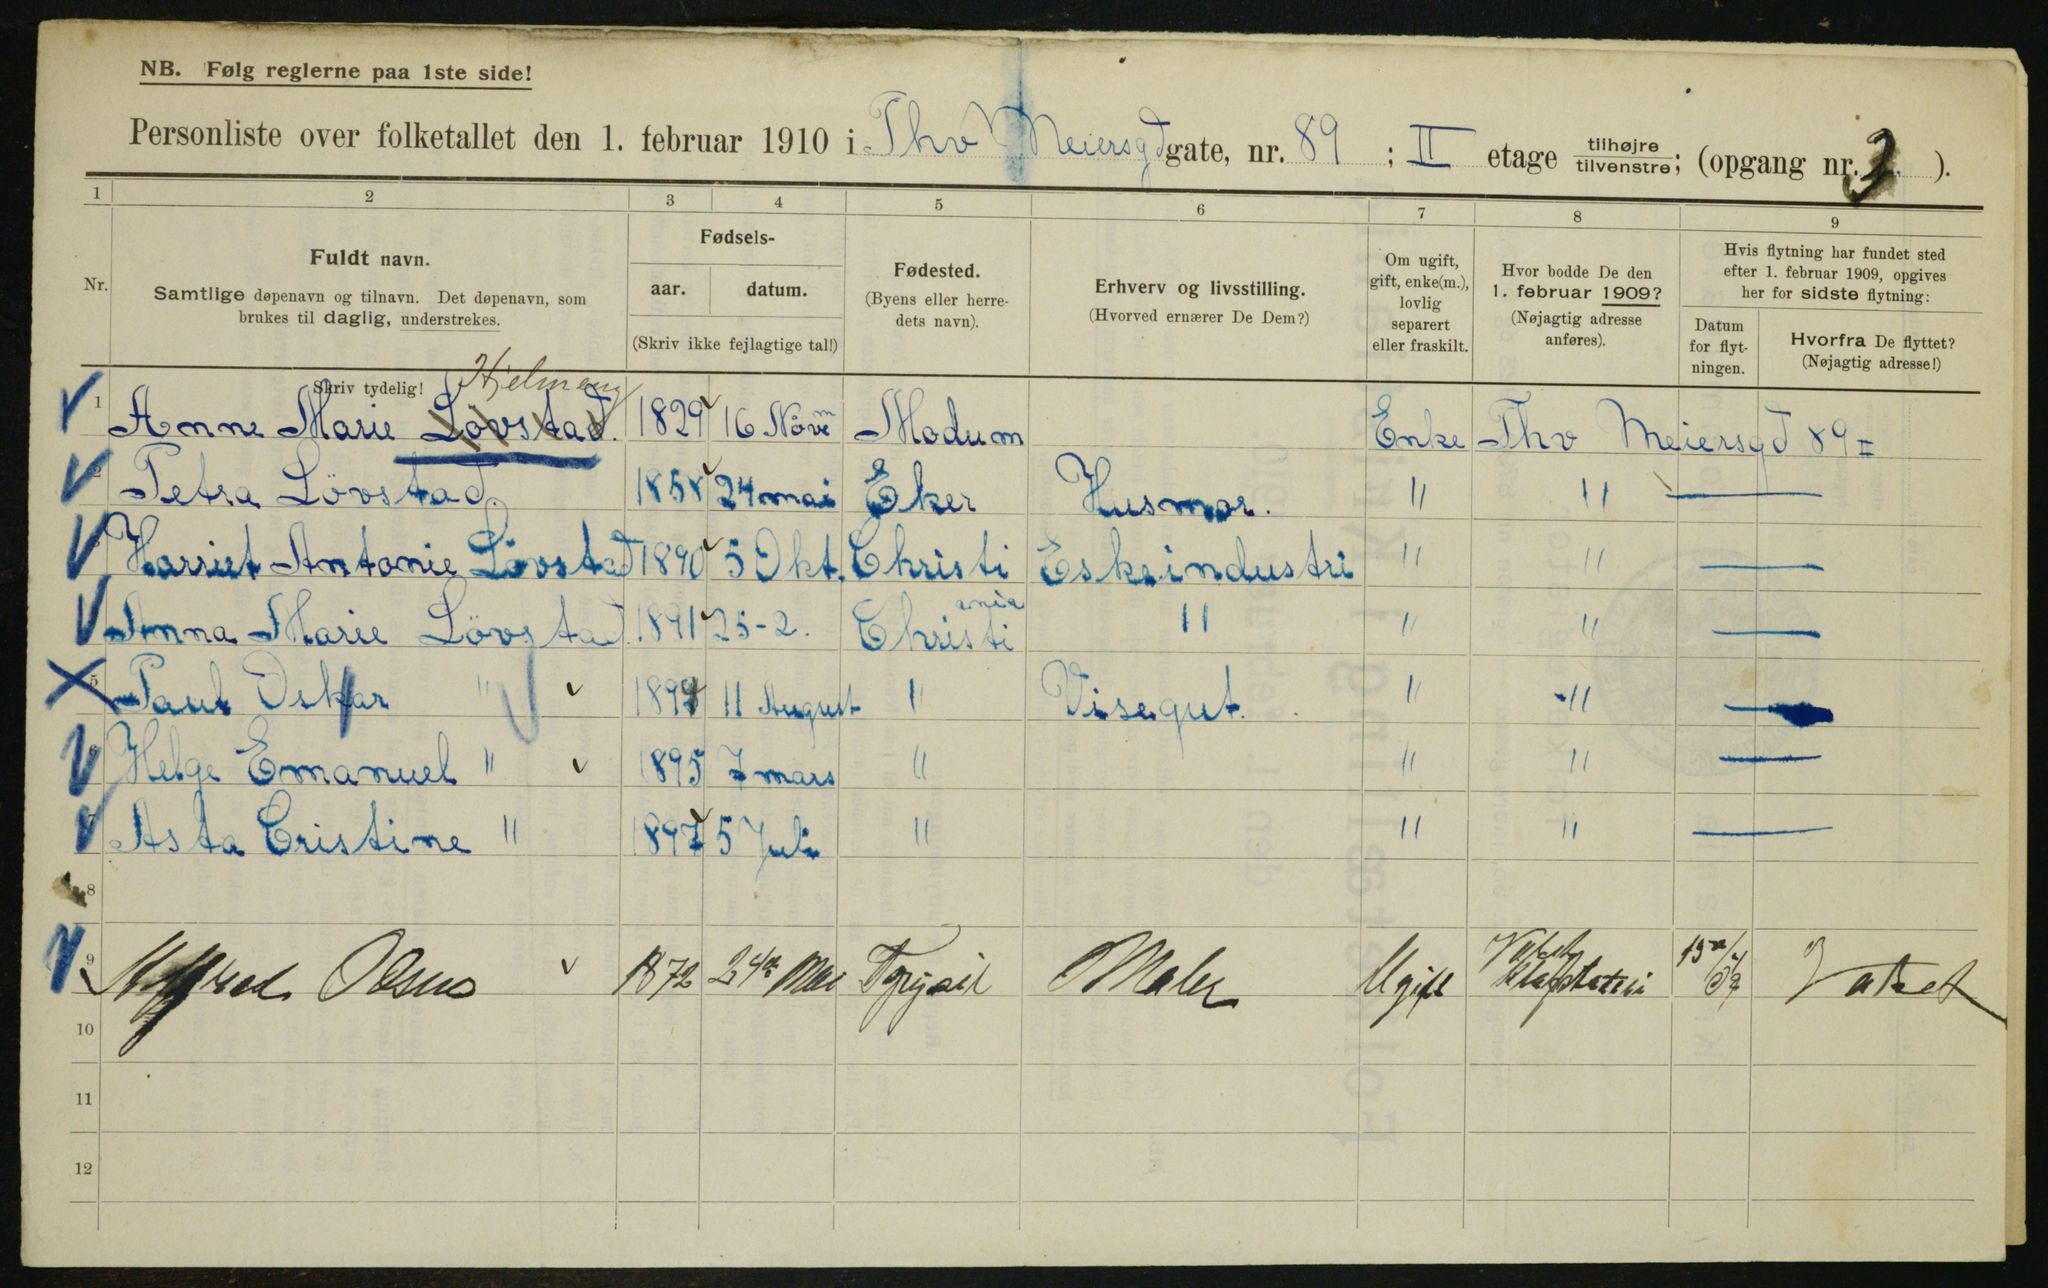 NB. Følg reglerne paa 1ste side!
Personliste over folketallet den 1. februar 1910 i Thv Meiersgd gate, nr. 89 ; II etage tilhøjre tilvenstre; (opgang nr. 2. ).
1 2 3 4 5 6 7 8 9
Nr.
Fuldt navn.
Samtlige døpenavn og tilnavn. Det døpenavn, som
brukes til daglig, understrekes.
Skriv tydelig!
Fødsels-
aar. datum.
(Skriv ikke fejlagtige tal!)
Fødested.
(Byens eller herre-
dets navn).
Erhverv og livsstilling.
(Hvorved ernærer De Dem?)
Om ugift,
gift, enke(m.),
lovlig
separert
eller fraskilt.
Hvor bodde De den
1. februar 1909?
(Nøjagtig adresse
anføres).
Hvis flytning har fundet sted
efter 1. februar 1909, opgives
her for sidste flytning:
Datum
for flyt-
ningen.
Hvorfra De flyttet?
(Nøjagtig adresse!)
1 Anne Marie Lövstad. 1829 16 Novem Modum Enke Thv Meiersgd 89 II
2 Petra Lövstad. 1858 24 mai Eker Husmor. " " —
Harriet Antonie Lövstad 1890 5 Okt. Christi Eskeindustri " " —
Anna Marie Lövstad. 1891 25-2. Christiania " " " —
5 Paul Oskar " 11 August " Visegut. " " —
Helge Emanuel " 1895 7 mars " " " —
7 Asta Cristine " 1897 5 Juli " " " —
8
9 1872 24de Maler Ugift
10
11
12